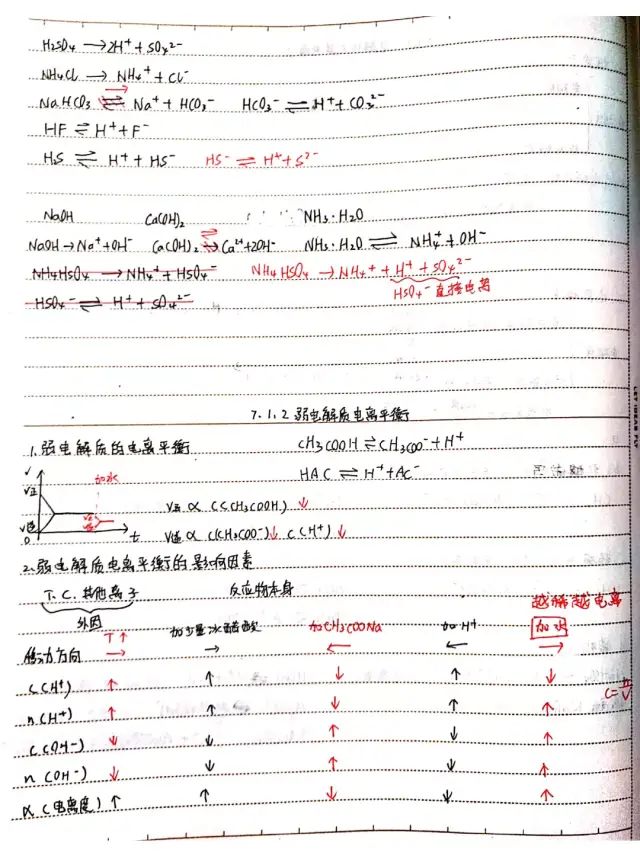 H2SO4 → 2H⁺ + SO4²⁻
NH4Cl → NH4⁺ + Cl⁻
NaHCO3 ⇌ → Na⁺ + HCO3⁻ HCO3⁻ ⇌ H⁺ + CO3²⁻
HF ⇌ H⁺ + F⁻
H2S ⇌ H⁺ + HS⁻ HS⁻ ⇌ H⁺ + S²⁻
NaOH Ca(OH)2 NH3·H2O
NaOH → Na⁺ + OH⁻ Ca(OH)2 ⇌ → Ca²⁺ + 2OH⁻ NH3·H2O ⇌ NH4⁺ + OH⁻
NH4HSO4 → NH4⁺ + HSO4⁻ NH4HSO4 → NH4⁺ + H⁺ + SO4²⁻
HSO4⁻ ⇌ H⁺ + SO4²⁻ HSO4⁻直接电离
7.1.2 弱电解质电离平衡
1.弱电解质的电离平衡 CH3COOH ⇌ CH3COO⁻ + H⁺
V 加水 HAC ⇌ H⁺ + Ac⁻
V正 V正 V正 ∝ C(CH3COOH) ↓
V逆 V逆 t V逆 ∝ C(CH3COO⁻) ↓ C(H⁺) ↓
0
2.弱电解质电离平衡的影响因素
T.C.其他离子 反应物本身 越稀越电离
外因 T↑ 加少量冰醋酸 加CH3COONa 加H⁺ 加水
移动方向 → → ← ← →
C(H⁺) ↑ ↑ ↓ ↑ ↓ C=n/V
n(H⁺) ↑ ↑ ↓ ↑ ↑
C(OH⁻) ↓ ↓ ↑ ↓ ↑
n(OH⁻) ↓ ↓ ↑ ↓ ↑
α(电离度) ↑ ↑ ↓ ↓ ↑